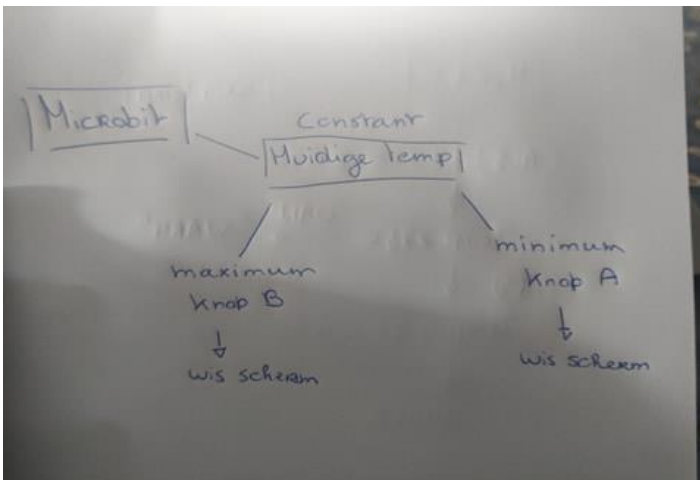 Microbit
Constant
Huidige temp
maximum
Knop B
wis scherm
minimum
Knop A
wis scherm